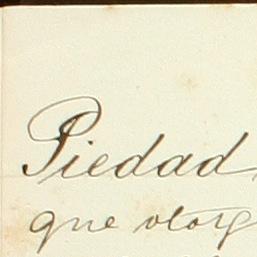 Piedad
que otorg